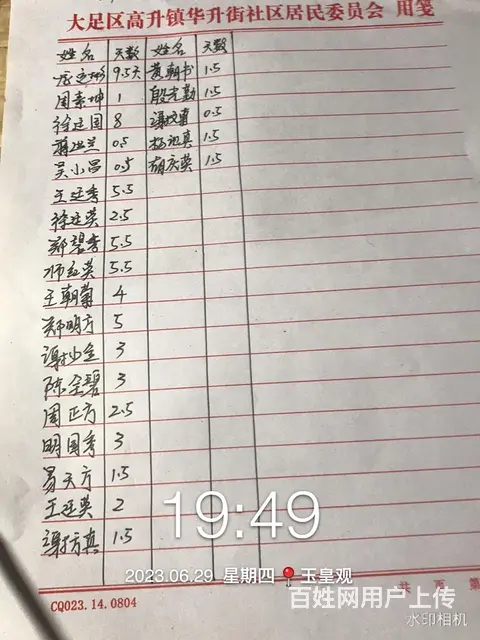 大足区高升镇华升街社区居民委员会 用笺
姓名 天数 姓名 天数
9.5天 黄朝书 1.5
周素坤 1 殷光勤 1.5
徐廷国 8 0.5
蒋世兰 0.5 杨祖真 1.5
吴小昌 0.5 胡庆英 1.5
王廷秀 5.5
徐廷英 2.5
郑碧秀 5.5
师红英 5.5
王朝菊 4
郑明方 5
谢少全 3
陈全碧 3
周正方 2.5
明国秀 3
易天方 1.5
王廷英 2
谢方真 1.5
19:49
2023.06.29 星期四 玉皇观
共 页 第
CQ023.14.0804
百姓网用户上传
水印相机